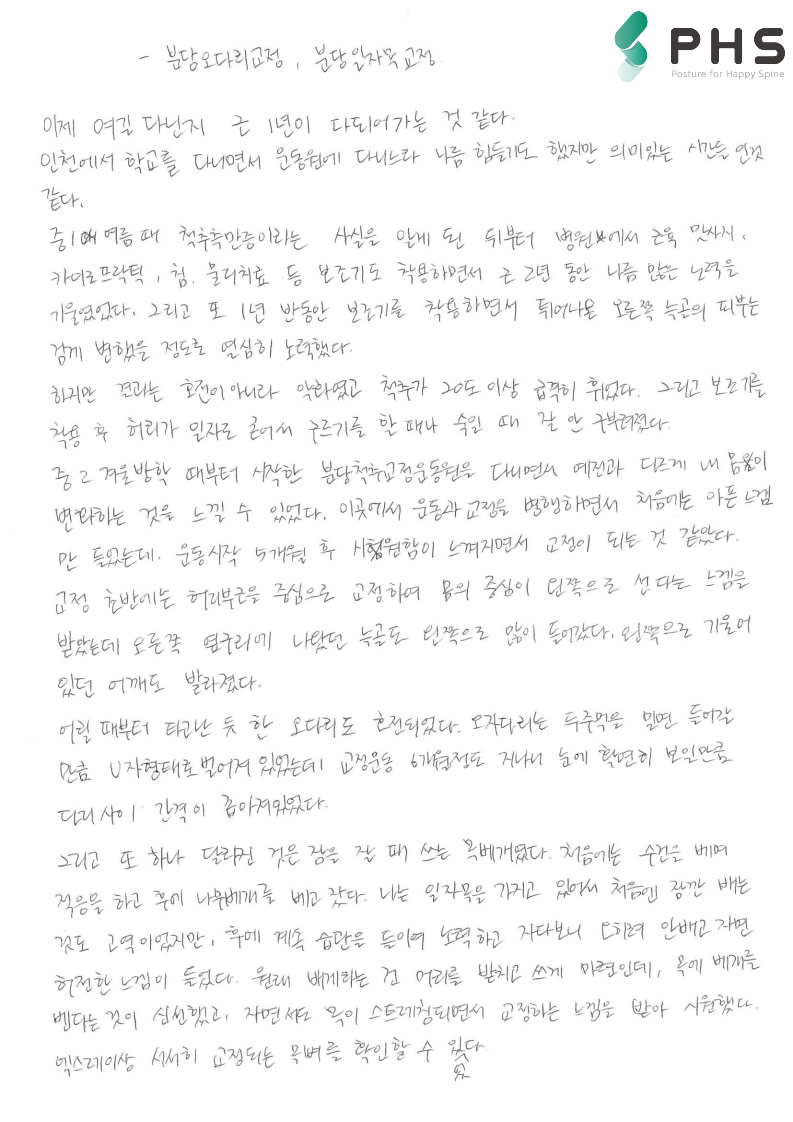 PHS
Posture for Happy Spine
- 분당오다리교정, 분당일자목교정
이제 여길 다닌지 근 1년이 다되어가는 것 같다.
인천에서 학교를 다니면서 운동원에 다니느라 나름 힘들기도 했지만 의미있는 시간들인것
같다.
중1 여름 때 척추측만증이라는 사실을 알게 된 뒤부터 병원에서 근육 맛사지,
카이로프락틱, 침, 물리치료 등 보조기도 착용하면서 근 2년 동안 나름 많은 노력을
기울였었다. 그리고 또 1년 반동안 보조기를 착용하면서 튀어나온 오른쪽 늑골의 피부는
검게 변했을 정도로 열심히 노력했다.
하지만 결과는 호전이아니라 악화였고 척추가 20도 이상 급격히 휘었다. 그리고 보조기를
착용 후 허리가 일자로 굳어서 구르기를 할 때나 숙일 때 잘 안 구부려졌다.
중2 겨울방학 때부터 시작한 분당척추교정운동원을 다니면서 예전과 다르게 내 몸이
변화하는 것을 느낄 수 있었다. 이곳에서 운동과 교정을 병행하면서 처음에는 아픈느낌
만 들었는데. 운동시작 5개월 후 시원함이 느껴지면서 교정이 되는 것 같았다.
교정 초반에는 허리부근을 중심으로 교정하여 몸의 중심이 왼쪽으로 선다는 느낌을
받았는데 오른쪽 옆구리에 나왔던 늑골도 왼쪽으로 많이 들어갔다. 왼쪽으로 기울어
있던 어깨도 발라졌다.
어릴 때부터 타고난 듯 한 오다리도 호전되었다. 오자다리는 두주먹을 밀면 들어갈
만큼 U자형태로벌어져 있었는데 교정운동 6개월정도 지나니 눈에 확연히 보일만큼
다리사이 간격이 좁아져있었다.
그리고 또 하나 달라진 것은 잠을 잘 때 쓰는 목베개였다. 처음에는 수건을 베며
적응을 하고 후에 나무베개를 베고 잤다. 나는 일자목을 가지고 있어서 처음엔 잠깐 배는
것도 고역이었지만, 후에 계속 습관을 들이며 노력하고 자다보니 오히려 안배고자면
허전한 느낌이 들었다. 원래 배게라는 건 머리를 받치고 쓰게 마련인데, 목에 베개를
벤다는 것이 신선했고, 자면서도 목이 스트레칭되면서 교정하는 느낌을 받아 시원했다.
엑스레이상 서서히 교정되는 목뼈를 확인할 수 있었다.